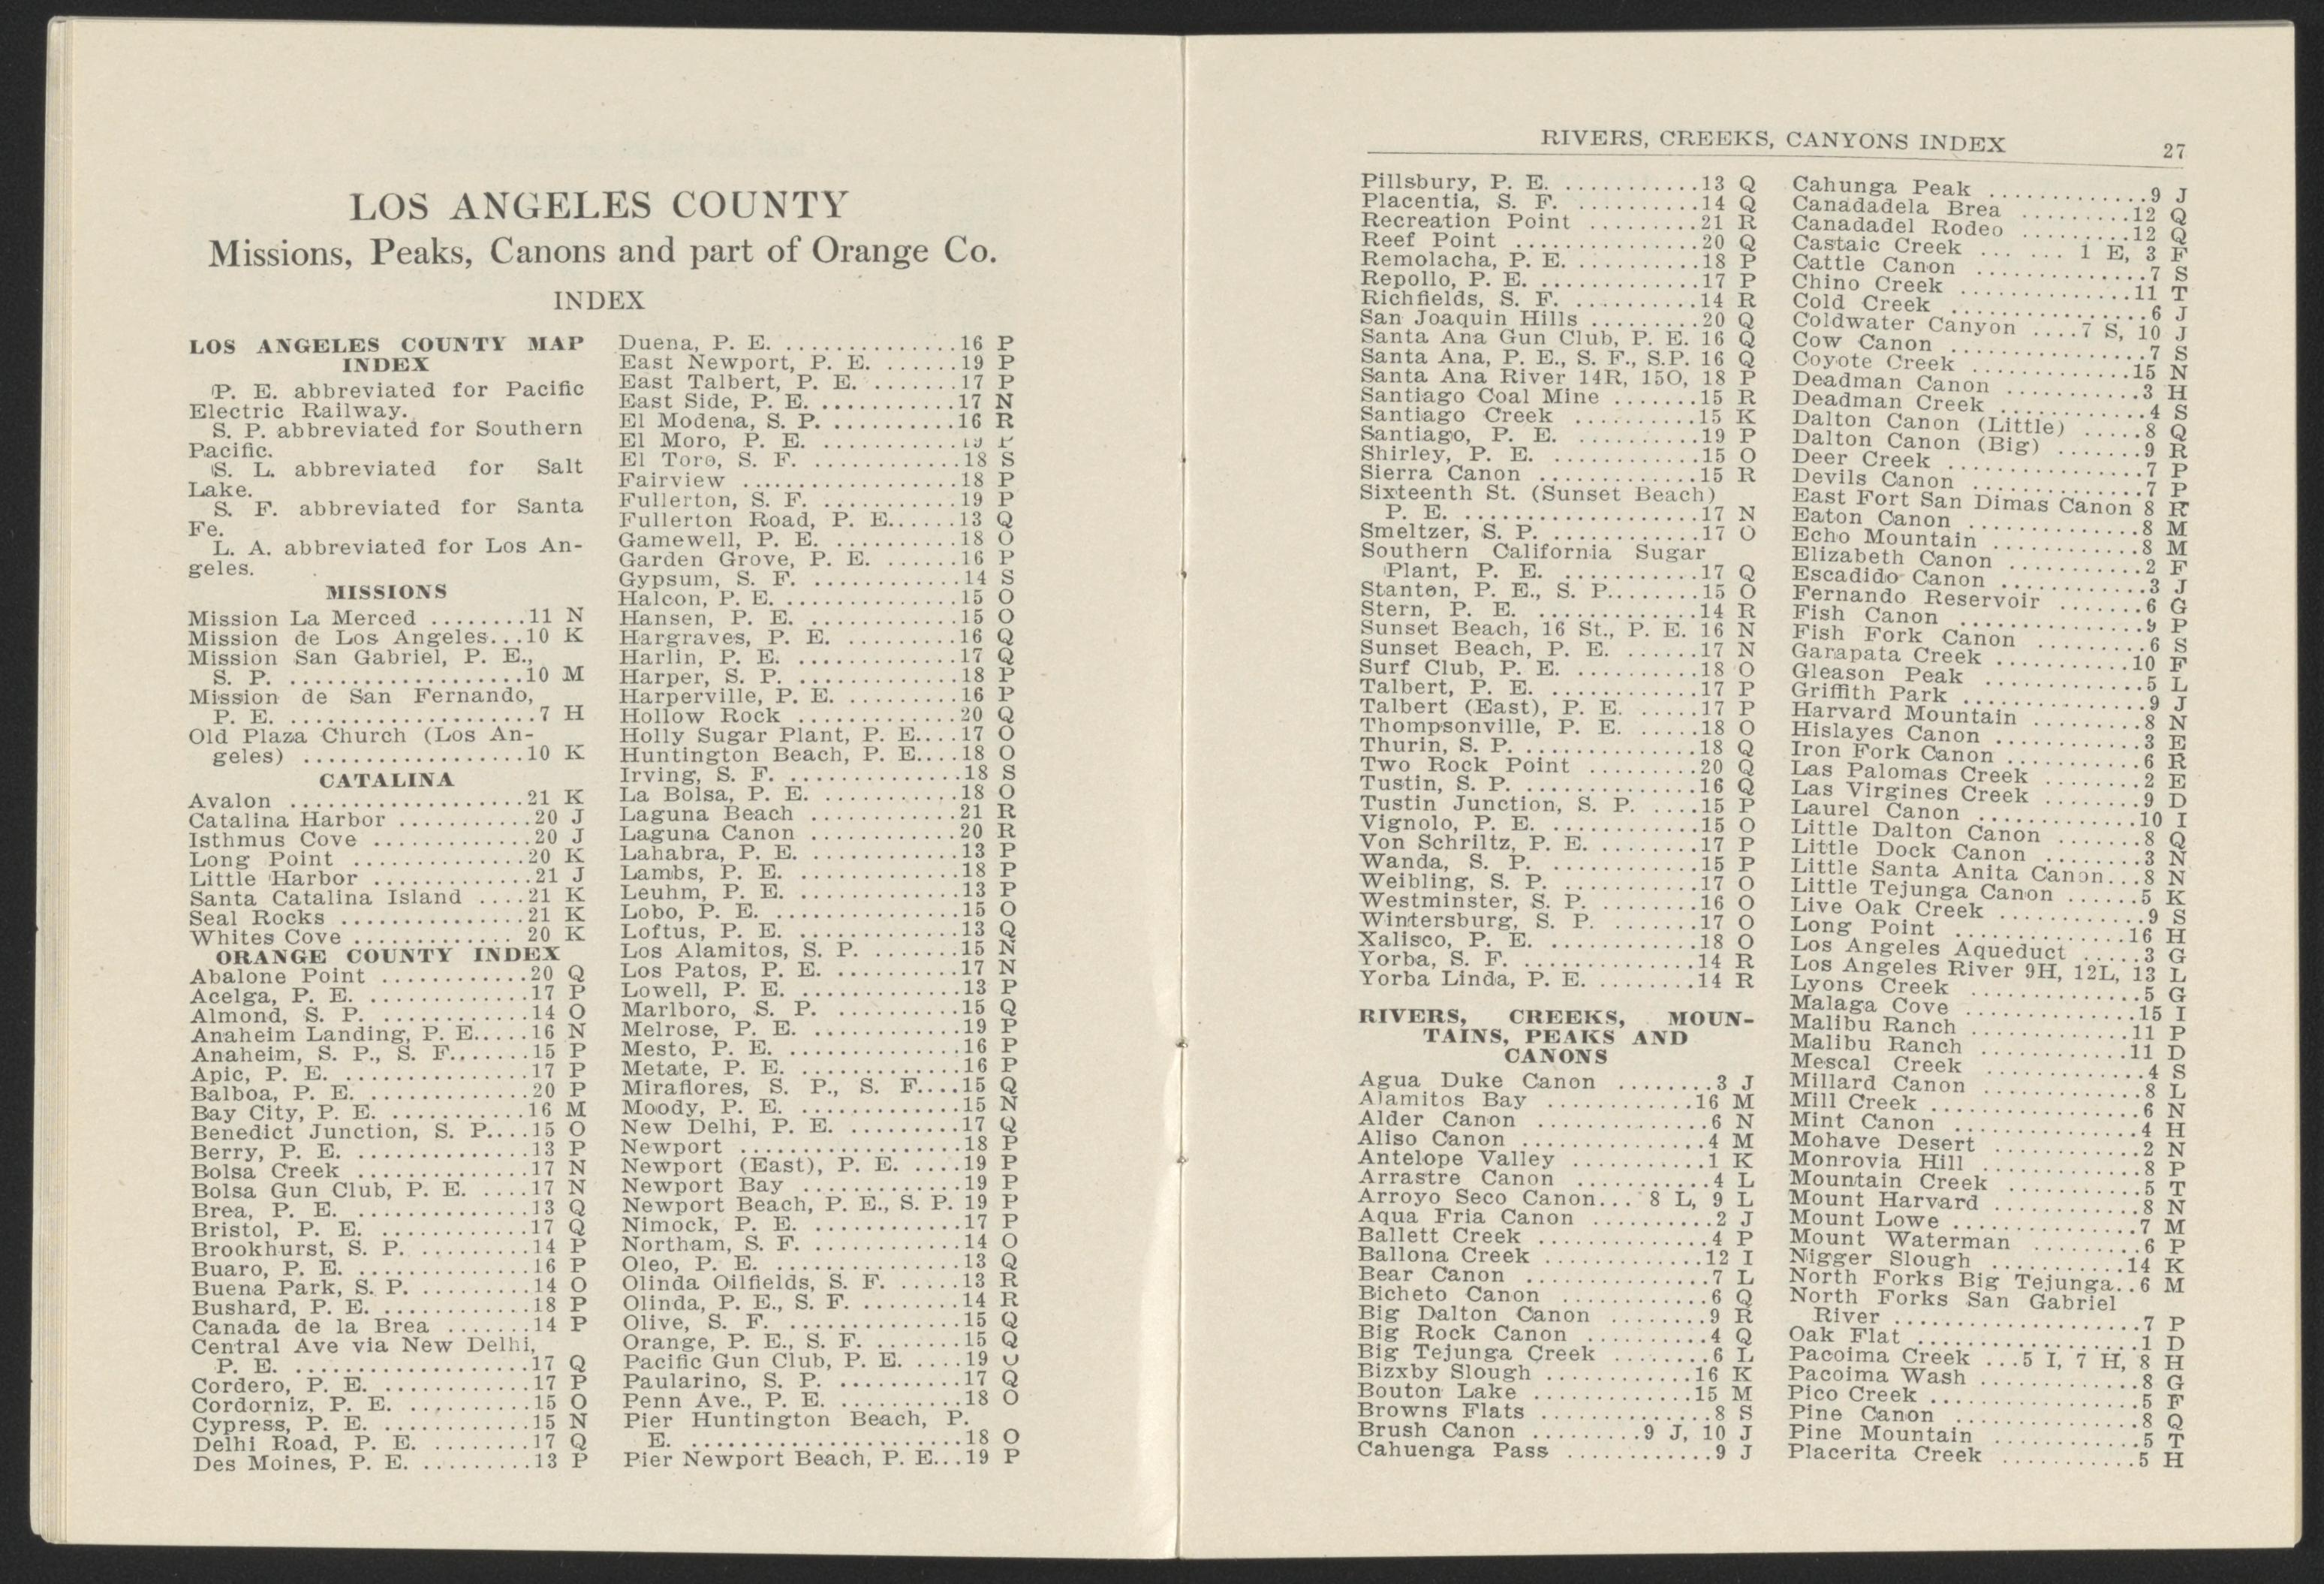 LOS ANGELES COUNTY
Missions, Peaks, Canons and part of Orange Co.
INDEX
LOS ANGELES COUNTY MAP
INDEX
P. E. abbreviated for Pacific
Electric Railway.
S. P. abbreviated for Southern
Pacific.
S. L. abbreviated for Salt
Lake.
S. F. abbreviated for Santa
Fe.
L. A. abbreviated for Los An-
geles.
MISSIONS
Mission La Merced ........11 N
Mission de Los Angeles...10 K
Mission San Gabriel, P. E.,
S. P. ...................10 M
Mission de San Fernando,
P. E. ....................7 H
Old Plaza Church (Los An-
geles) ..................10 K
CATALINA
Avalon ...................21 K
Catalina Harbor ...........20 J
Isthmus Cove .............20 J
Long Point ..............20 K
Little Harbor .............21 J
Santa Catalina Island ....21 K
Seal Rocks ...............21 K
Whites Cove ............. 20 K
ORANGE COUNTY INDEX
Abalone Point ............20 Q
Acelga, P. E. .............17 P
Almond, S. P. ............14 O
Anaheim Landing, P. E.....16 N
Anaheim, S. P., S. F.......15 P
Apic, P. E. ...............17 P
Balboa, P. E. .............20 P
Bay City, P. E. ...........16 M
Benedict Junction, S. P....15 O
Berry, P. E. ..............13 P
Bolsa Creek ..............17 N
Bolsa Gun Club, P. E. ....17 N
Brea, P. E. ..............13 Q
Bristol, P. E. ............17 Q
Brookhurst, S. P. .........14 P
Buaro, P. E. ..............16 P
Buena Park, S. P. .........14 O
Bushard, P. E. ............18 P
Canada de la Brea .......14 P
Central Ave via New Delhi,
P. E. ...................17 Q
Cordero, P. E. ............17 P
Cordorniz, P. E. ..........15 O
Cypress, P. E. ............15 N
Delhi Road, P. E. ........17 Q
Des Moines, P. E. .........13 P
Duena, P. E. ..............16 P
East Newport, P. E. ......19 P
East Talbert, P. E. .......17 P
East Side, P. E. ...........17 N
El Modena, S. P. ..........16 R
El Moro, P. E. ...........
El Toro, S. F. ............18 S
Fairview ..................18 P
Fullerton, S. F. ...........19 P
Fullerton Road, P. E......13 Q
Gamewell, P. E. ..........18 O
Garden Grove, P. E. ......16 P
Gypsum, S. F. ............14 S
Halcon, P. E. ..............15 O
Hansen, P. E. .............15 O
Hargraves, P. E. .........16 Q
Harlin, P. E. .............17 Q
Harper, S. P. .............18 P
Harperville, P. E. .........16 P
Hollow Rock .............20 Q
Holly Sugar Plant, P. E....17 O
Huntington Beach, P. E....18 O
Irving, S. F. ..............18 S
La Bolsa, P. E. ...........18 O
Laguna Beach ............21 R
Laguna Canon ............20 R
Lahabra, P. E. ............13 P
Lambs, P. E. .............18 P
Leuhm, P. E. .............13 P
Lobo, P. E. ...............15 O
Loftus, P. E. .............13 Q
Los Alamitos, S. P. .......15 N
Los Patos, P. E. ..........17 N
Lowell, P. E. .............13 P
Marlboro, S. P. ..........15 Q
Melrose, P. E. ............19 P
Mesto, P. E. ..............16 P
Metate, P. E. .............16 P
Miraflores, S. P., S. F....15 Q
Moody, P. E. .............15 N
New Delhi, P. E. .........17 Q
Newport ..................18 P
Newport (East), P. E. ....19 P
Newport Bay .............19 P
Newport Beach, P. E., S. P. 19 P
Nimock, P. E. ............17 P
Northam, S. F. ............14 O
Oleo, P. E. ...............13 Q
Olinda Oilfields, S. F. .....13 R
Olinda, P. E., S. F. ........14 R
Olive, S. F. ..............15 Q
Orange, P. E., S. F. .......15 Q
Pacific Gun Club, P. E. .....19
Paularino, S. P. ..........17 Q
Penn Ave., P. E. ..........18 O
Pier Huntington Beach, P.
E. ......................18 O
Pier Newport Beach, P. E...19 P
RIVERS, CREEKS, CANYONS INDEX
27
Pillsbury, P. E. ...........13 Q
Placentia, S. F. ..........14 Q
Recreation Point .........21 R
Reef Point ...............20 Q
Remolacha, P. E. ..........18 P
Repollo, P. E. .............17 P
Richfields, S. F. ..........14 R
San Joaquin Hills .........20 Q
Santa Ana Gun Club, P. E. 16 Q
Santa Ana, P. E., S. F., S.P. 16 Q
Santa Ana River 14R, 15O, 18 P
Santiago Coal Mine .......15 R
Santiago Creek ..........15 K
Santiago, P. E. ..........19 P
Shirley, P. E. ............15 O
Sierra Canon .............15 R
Sixteenth St. (Sunset Beach)
P. E. ...................17 N
Smeltzer, S. P. ............17 O
Southern California Sugar
Plant, P. E. ...........17 Q
Stanton, P. E., S. P........15 O
Stern, P. E. .............14 R
Sunset Beach, 16 St., P. E. 16 N
Sunset Beach, P. E. ......17 N
Surf Club, P. E. ..........18 O
Talbert, P. E. ............17 P
Talbert (East), P. E. .....17 P
Thompsonville, P. E. ......18 O
Thurin, S. P. .............18 Q
Two Rock Point .........20 Q
Tustin, S. P. .............16 Q
Tustin Junction, S. P. ....15 P
Vignolo, P. E. ............15 O
Von Schriltz, P. E. ........17 P
Wanda, S. P. ............15 P
Weibling, S. P. ...........17 O
Westminster, S. P. ........16 O
Wintersburg, S. P. .......17 O
Xalisco, P. E. ............18 O
Yorba, S. F. ..............14 R
Yorba Linda, P. E. ........14 R
RIVERS, CREEKS, MOUN-
TAINS, PEAKS AND
CANONS
Agua Duke Canon ........3 J
Alamitos Bay ............16 M
Alder Canon .............6 N
Aliso Canon ...............4 M
Antelope Valley ...........1 K
Arrastre Canon ...........4 L
Arroyo Seco Canon... 8 L, 9 L
Aqua Fria Canon ..........2 J
Ballett Creek ..............4 P
Ballona Creek ............12 I
Bear Canon ...............7 L
Bicheto Canon ............6 Q
Big Dalton Canon ........9 R
Big Rock Canon ..........4 Q
Big Tejunga Creek ........6 L
Bizxby Slough ............16 K
Bouton Lake .............15 M
Browns Flats ..............8 S
Brush Canon .........9 J, 10 J
Cahuenga Pass ............9 J
Cahunga Peak .............9 J
Canadadela Brea .........12 Q
Canadadel Rodeo .........12 Q
Castaic Creek ... ... 1 E, 3 F
Cattle Canon ..............7 S
Chino Creek ..............11 T
Cold Creek ................6 J
Coldwater Canyon ....7 S, 10 J
Cow Canon ................7 S
Coyote Creek .............15 N
Deadman Canon ...........3 H
Deadman Creek ............4 S
Dalton Canon (Little) .....8 Q
Dalton Canon (Big) .......9 R
Deer Creek ................7 P
Devils Canon ..............7 P
East Fort San Dimas Canon 8 R
Eaton Canon ..............8 M
Echo Mountain ............8 M
Elizabeth Canon ...........2 F
Escadido Canon ............3 J
Fernando Reservoir .......6 G
Fish Canon ...............9 P
Fish Fork Canon .........6 S
Garapata Creek ...........10 F
Gleason Peak .............5 L
Griffith Park ...............9 J
Harvard Mountain .........8 N
Hislayes Canon ............3 E
Iron Fork Canon ...........6 R
Las Palomas Creek .......2 E
Las Virgines Creek ........9 D
Laurel Canon .............10 I
Little Dalton Canon .......8 Q
Little Dock Canon ........3 N
Little Santa Anita Canon...8 N
Little Tejunga Canon ......5 K
Live Oak Creek ............9 S
Long Point ..............16 H
Los Angeles Aqueduct .....3 G
Los Angeles River 9H, 12L, 13 L
Lyons Creek ..............5 G
Malaga Cove ..............15 I
Malibu Ranch ............11 P
Malibu Ranch ............11 D
Mescal Creek .............4 S
Millard Canon .............8 L
Mill Creek .................6 N
Mint Canon ...............4 H
Mohave Desert ............2 N
Monrovia Hill .............8 P
Mountain Creek ...........5 T
Mount Harvard ............8 N
Mount Lowe ...............7 M
Mount Waterman .........6 P
Nigger Slough ............14 K
North Forks Big Tejunga..6 M
North Forks San Gabriel
River .....................7 P
Oak Flat ..................1 D
Pacoima Creek ...5 I, 7 H, 8 H
Pacoima Wash .............8 G
Pico Creek .................5 F
Pine Canon ...............8 Q
Pine Mountain ............5 T
Placerita Creek ...........5 H